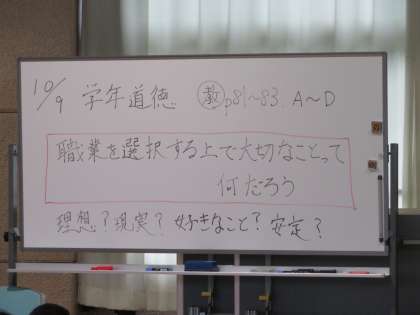 10/9 学年道徳 教 p81~83 A~D
職業を選択する上で大切なことって
何だろう
理想? 現実? 好きなこと? 安定?